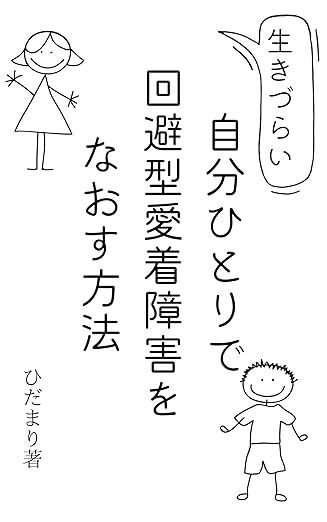 生きづらい
自分ひとりで
回避型愛着障害を
なおす方法
ひだまり著